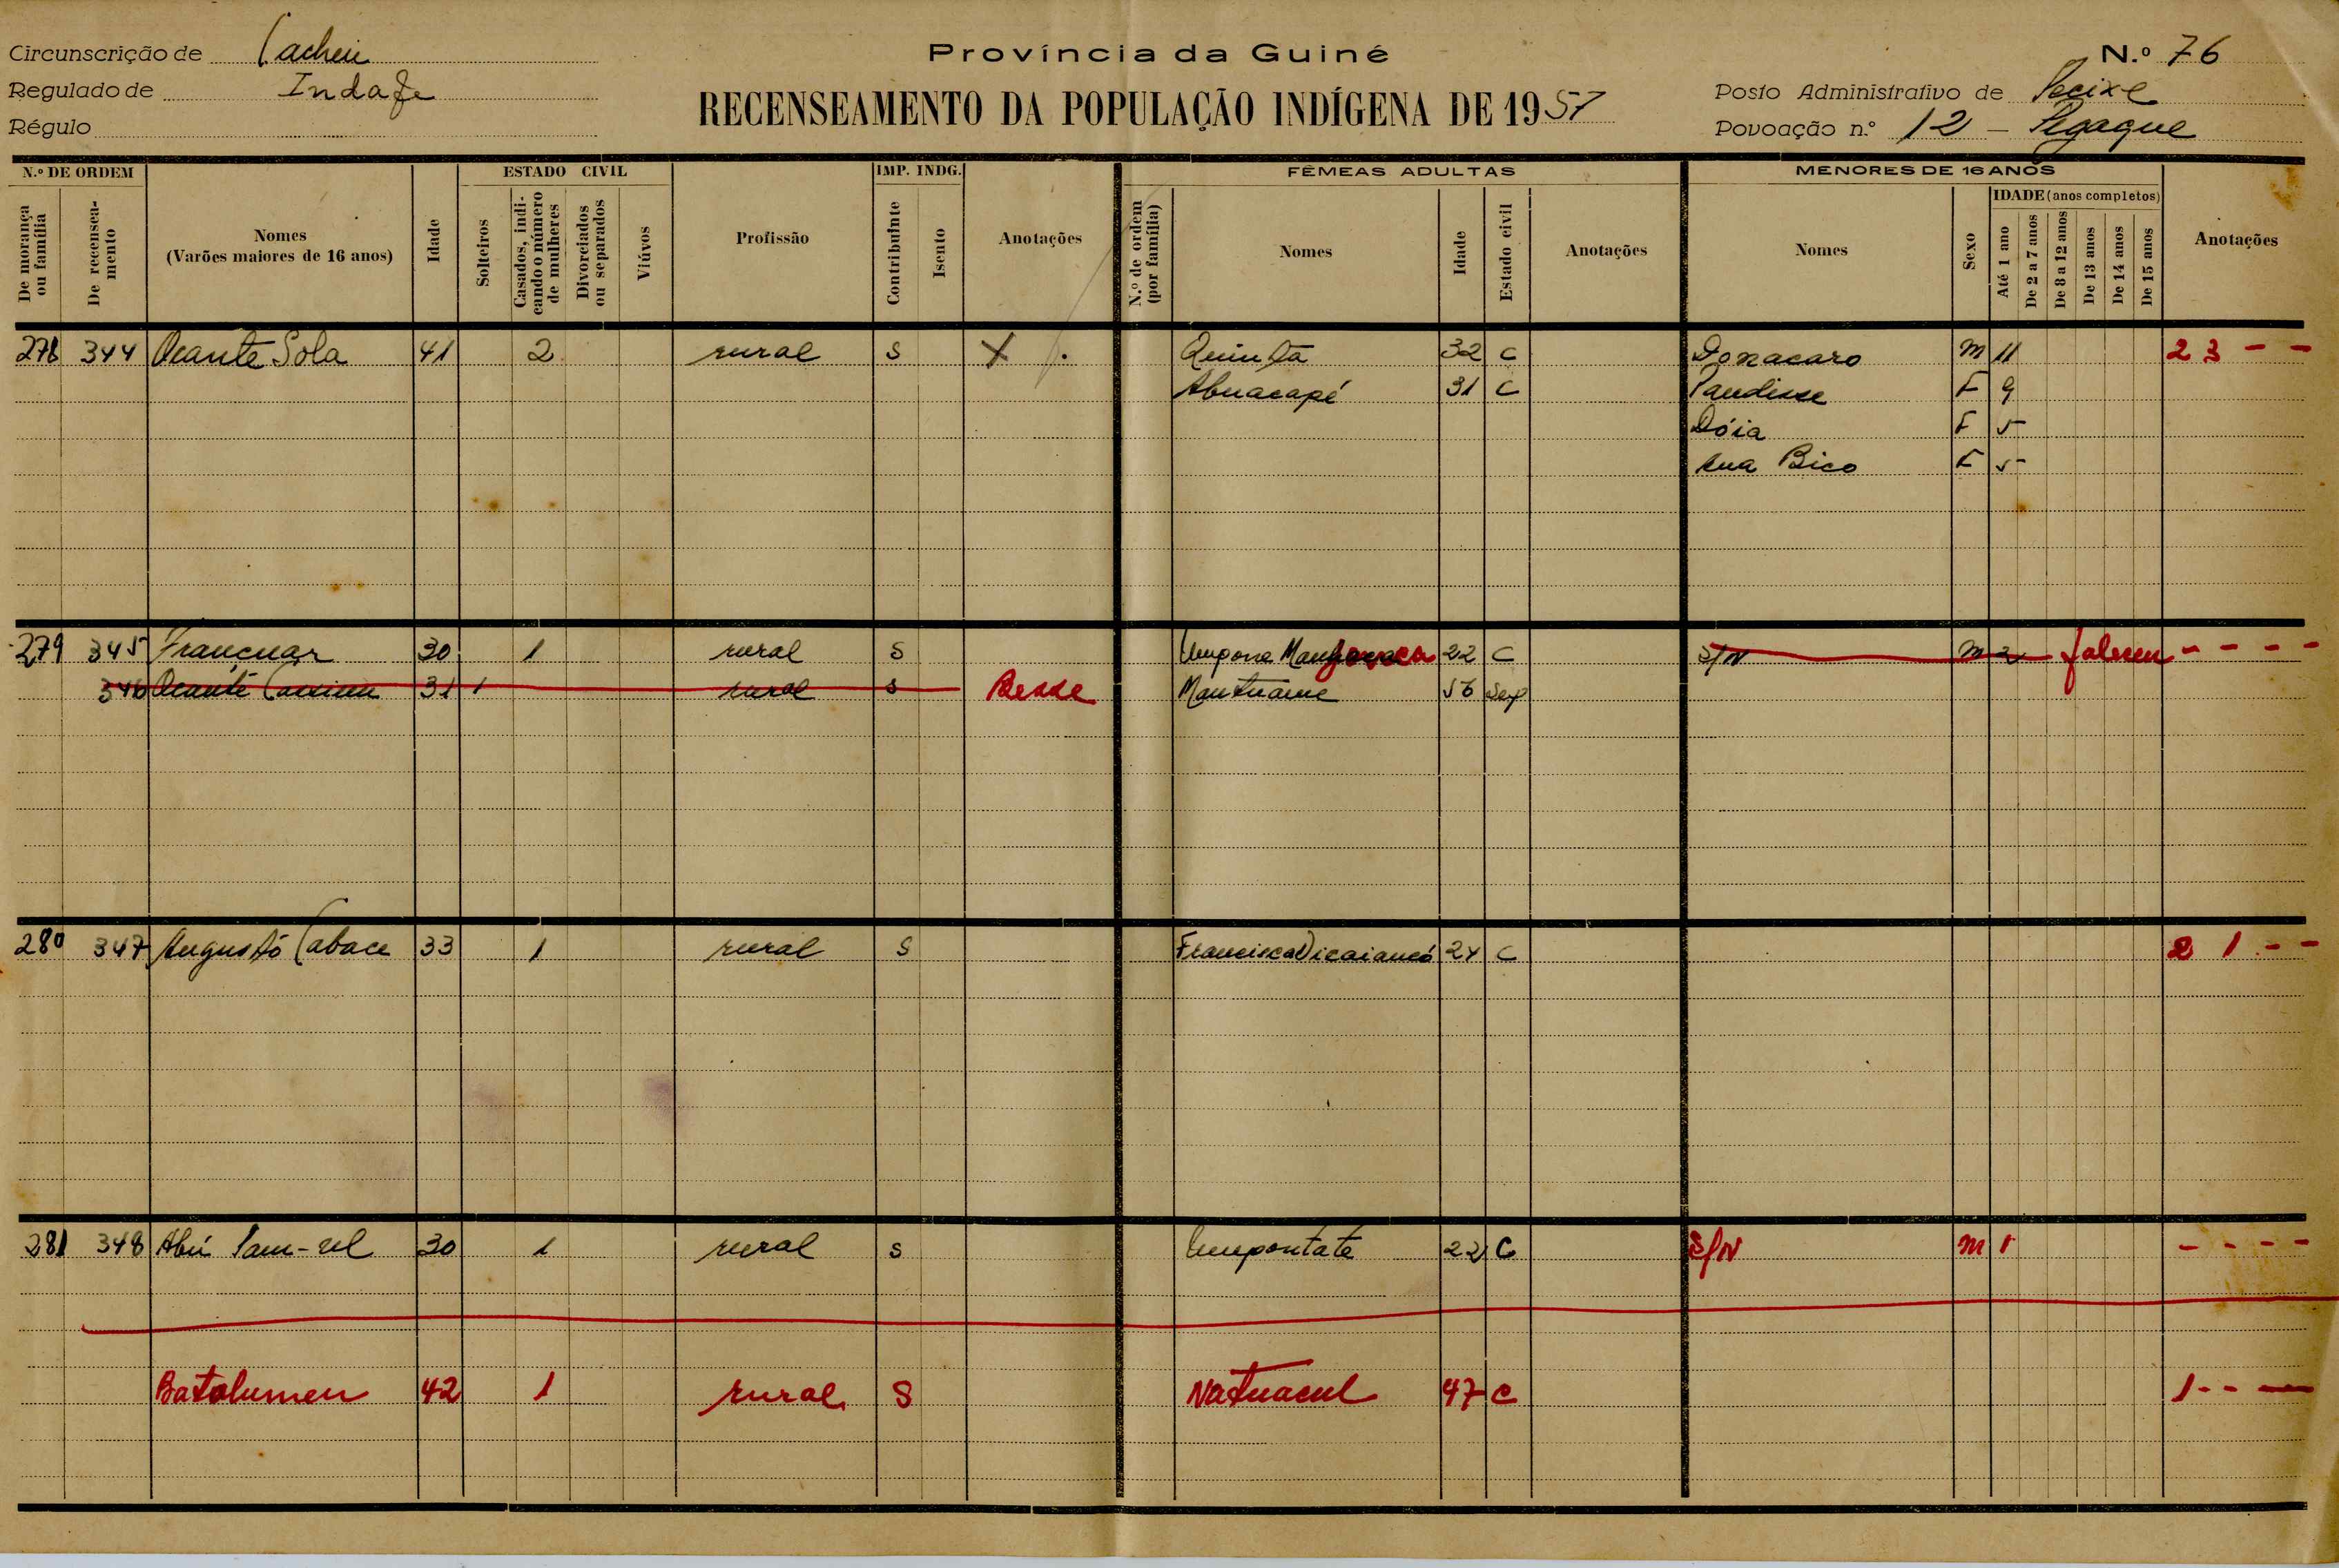 Província da Guiné
Circunscrição de Cacheu
N.º 76
Regulado de Indafe
RECENSEAMENTO DA POPULAÇÃO INDÍGENA DE 1957
Posto Administrativo de Pecixe
Régulo
Povoação n.º 12 - Pegaque
N.º DE ORDEM
De morança ou família
De recenseamento
Nomes
(Varões maiores de 16 anos)
Idade
ESTADO CIVIL
Solteiros
Casados, indicando o número de mulheres
Divorciados ou separados
Viúvos
Profissão
IMP. INDG.
Contribuinte
Isento
Anotações
FÊMEAS ADULTAS
N.º de ordem (por família)
Nomes
Idade
Estado civil
Anotações
MENORES DE 16 ANOS
Nomes
Sexo
IDADE (anos completos)
Até 1 ano
De 2 a 7 anos
De 8 a 12 anos
De 13 anos
De 14 anos
De 15 anos
Anotações
278 344 Ocante Sola 41 2 rural S X . Quinta 32 C Donacaro M 11 2 3 - -
Abuacapé 31 C F 9
Dóia F 5
Bico F 5
279 345 30 1 rural S 22 C S/N M 2 faleceu - - - -
346 Ocante 31 1 rural S 56 Sep
280 347 Augustó Cabace 33 1 rural S Francisca Dicaiancó 24 C 2 1 - -
281 348 Abú 30 1 rural S Umpontate 22 C S/N M 1 - - - -
Batolumeu 42 1 rural S Natuacul 47 C 1 - - -